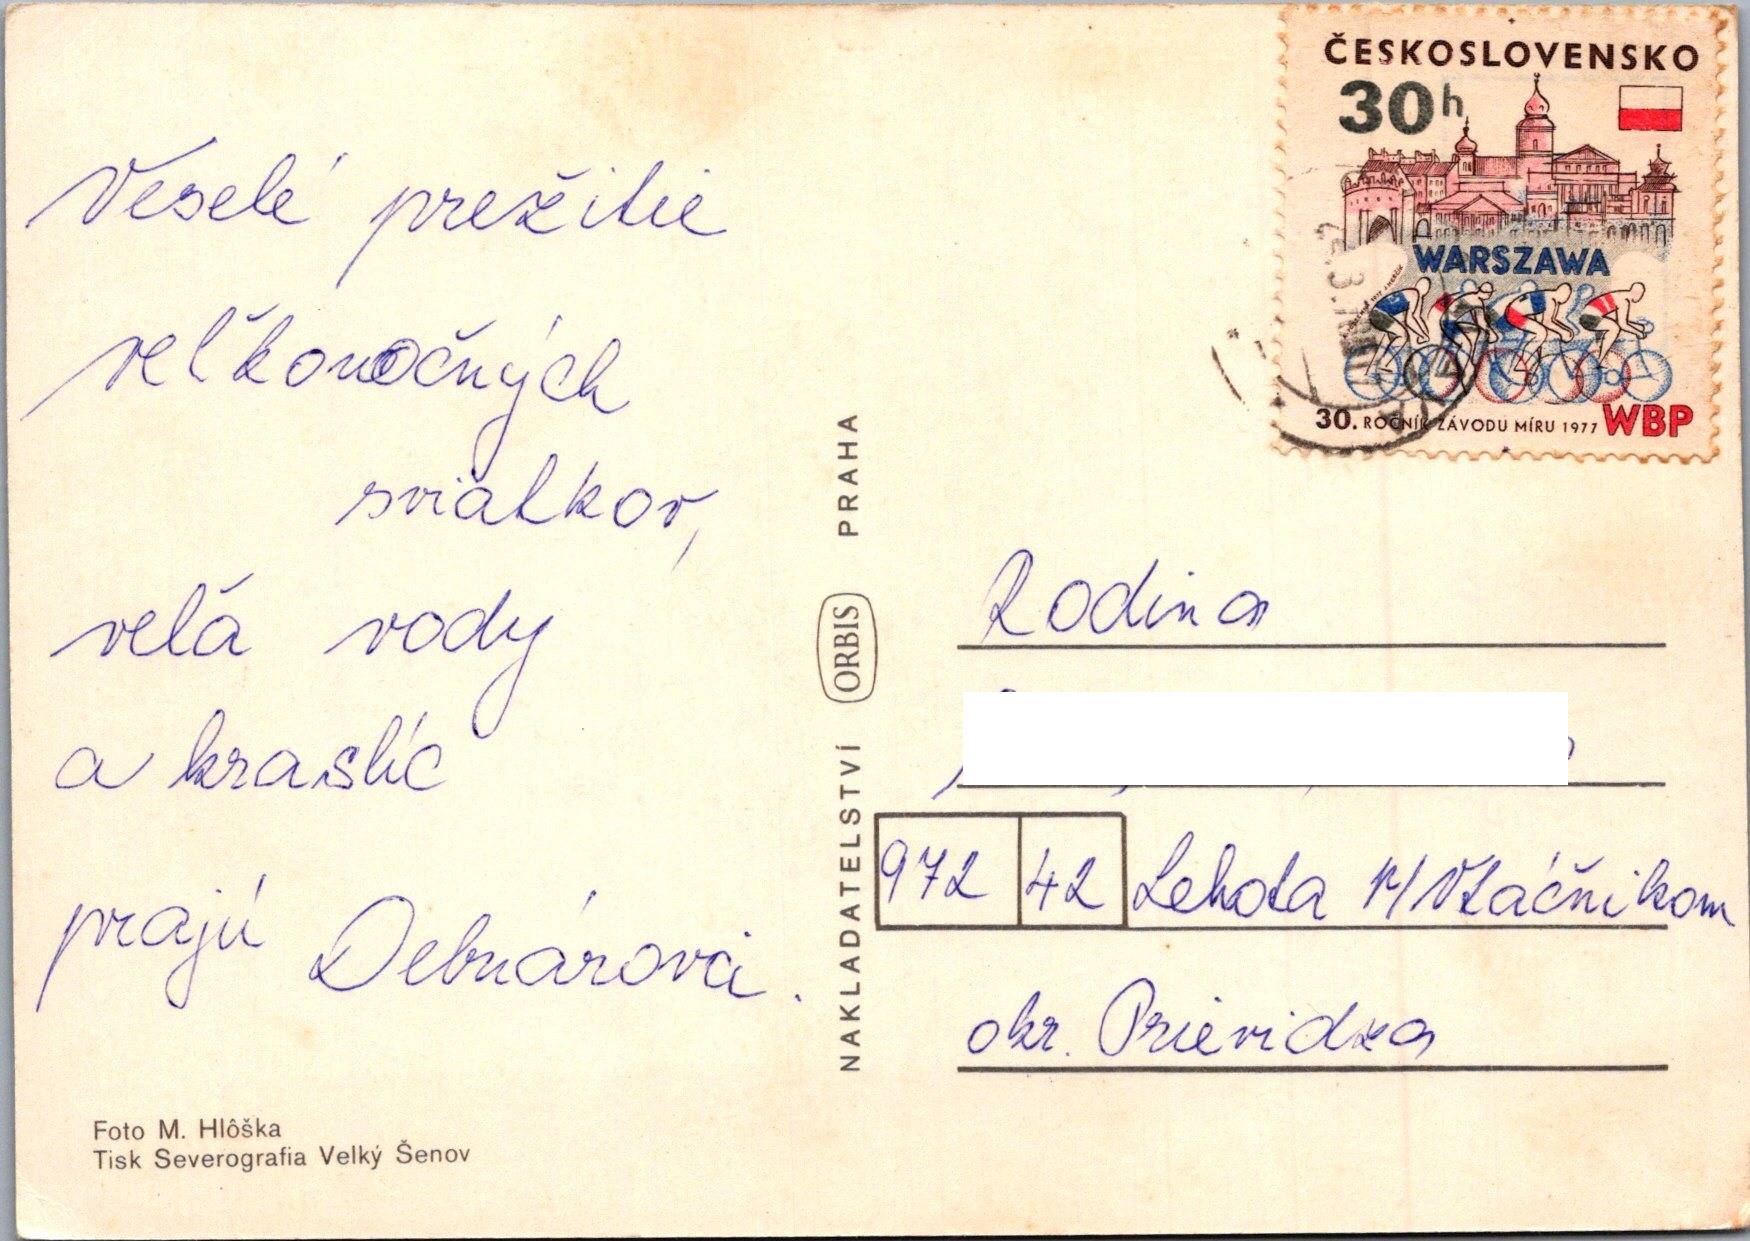 Veselé prežitie
veľkonočných
sviatkov,
velá vody
a kraslíc
prajú Debnárovci.
Foto M. Hlôška
Tisk Severografia Velký Šenov
NAKLADATELSTVÍ ORBIS PRAHA
ČESKOSLOVENSKO
30h
WARSZAWA
30. ROČNÍK ZÁVODU MÍRU 1977 WBP
Rodina
972 42 Lehota p/Vtáčnikom
okr. Prievidza